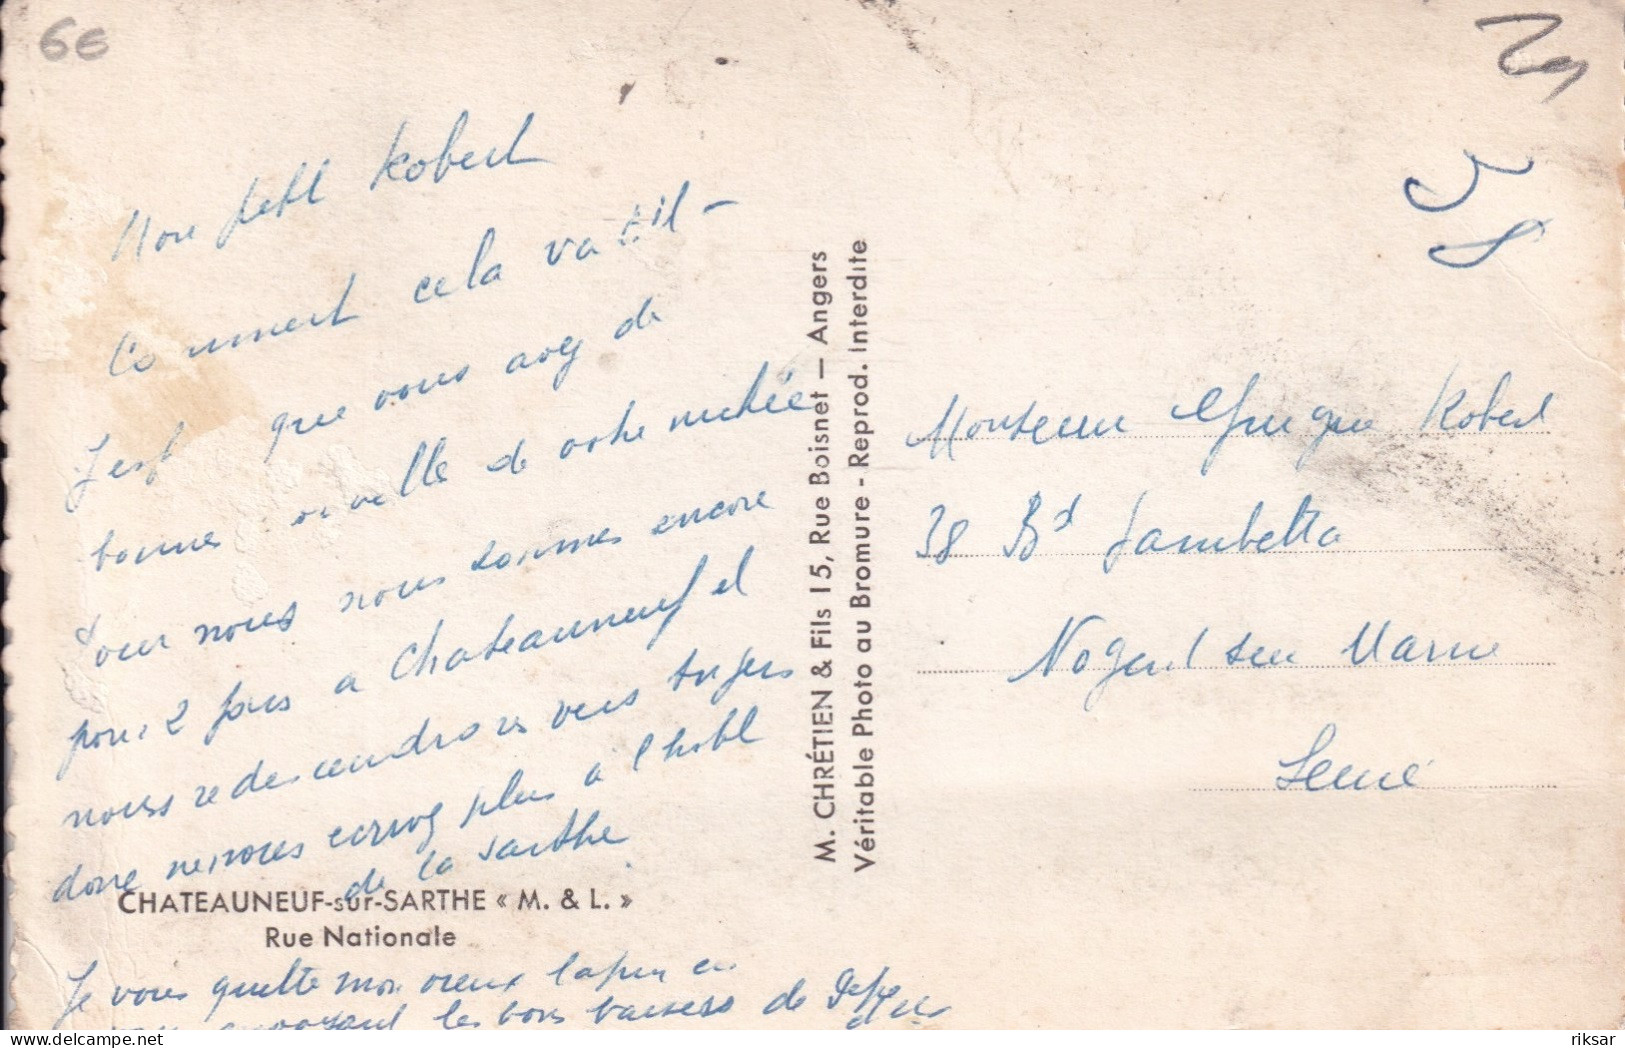 6€
Mon petit Robert
Comment cela va til -
J'esp que vous avez de
bonnes nouvelle de votre
Pour nous nous sommes encore
pour 2 jours a Chateauneuf et
nous redescendrons vers Angers
donc ne nous ecrivez plus à l'hotel
de la Sarthe
CHATEAUNEUF-sur-SARTHE « M. & L. »
Rue Nationale
Je vous quitte mon vieux lapin en
envoyant les bons baisers de
M. CHRÉTIEN & Fils 15, Rue Boisnet — Angers
Véritable Photo au Bromure - Reprod. Interdite
Monsieur Robert
38 Bd Gambetta
Nogent sur Marne
Seine
delcampe.net
riksar